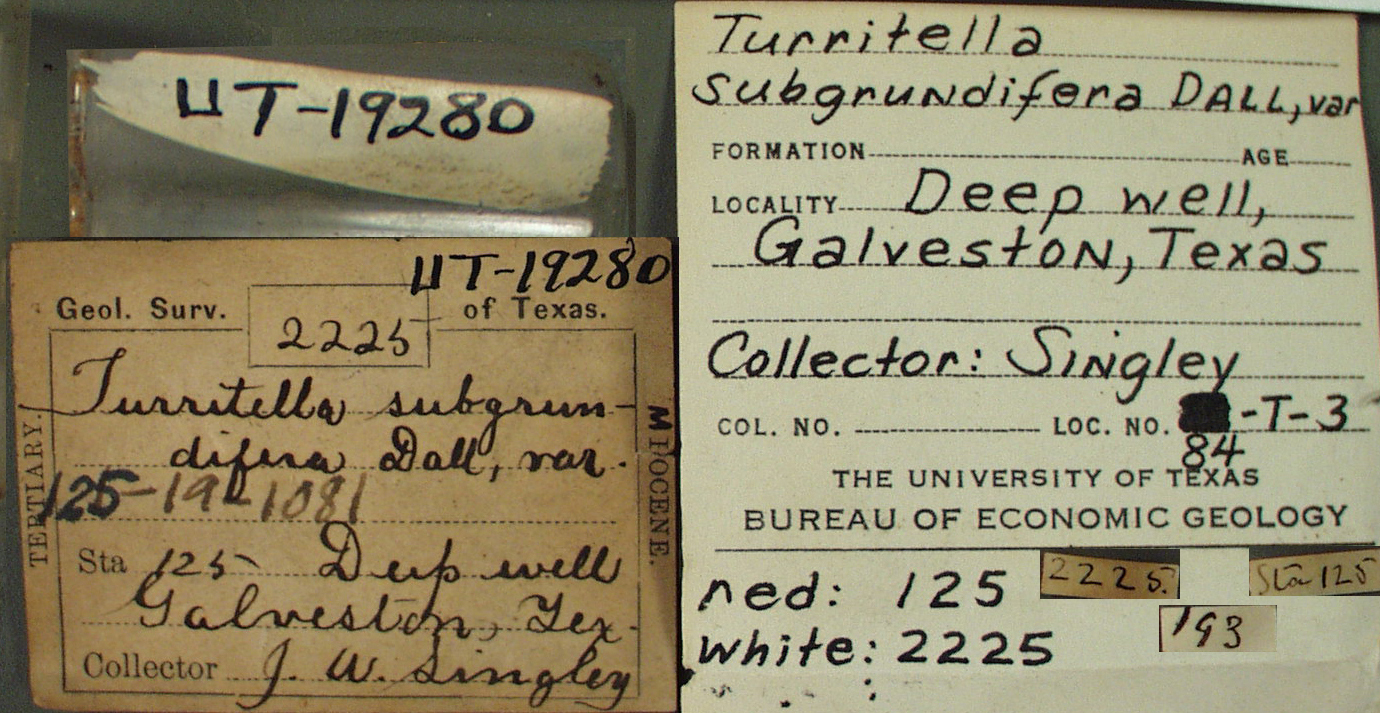 UT-19280
UT-19280
Geol. Surv. 2225 of Texas.
Turritella subgrun-
difera Dall, var.
125-19-1081
Sta 125 Deep well
Galveston, Tex.
Collector J. W. Singley
TERTIARY.
MIOCENE.
Turritella
subgrundifera DALL, var
FORMATION AGE
LOCALITY Deep well,
Galveston, Texas
Collector: Singley
COL. NO. LOC. NO. -T-3
84
THE UNIVERSITY OF TEXAS
BUREAU OF ECONOMIC GEOLOGY
red: 125 2225. Sta 125
white: 2225 193
: